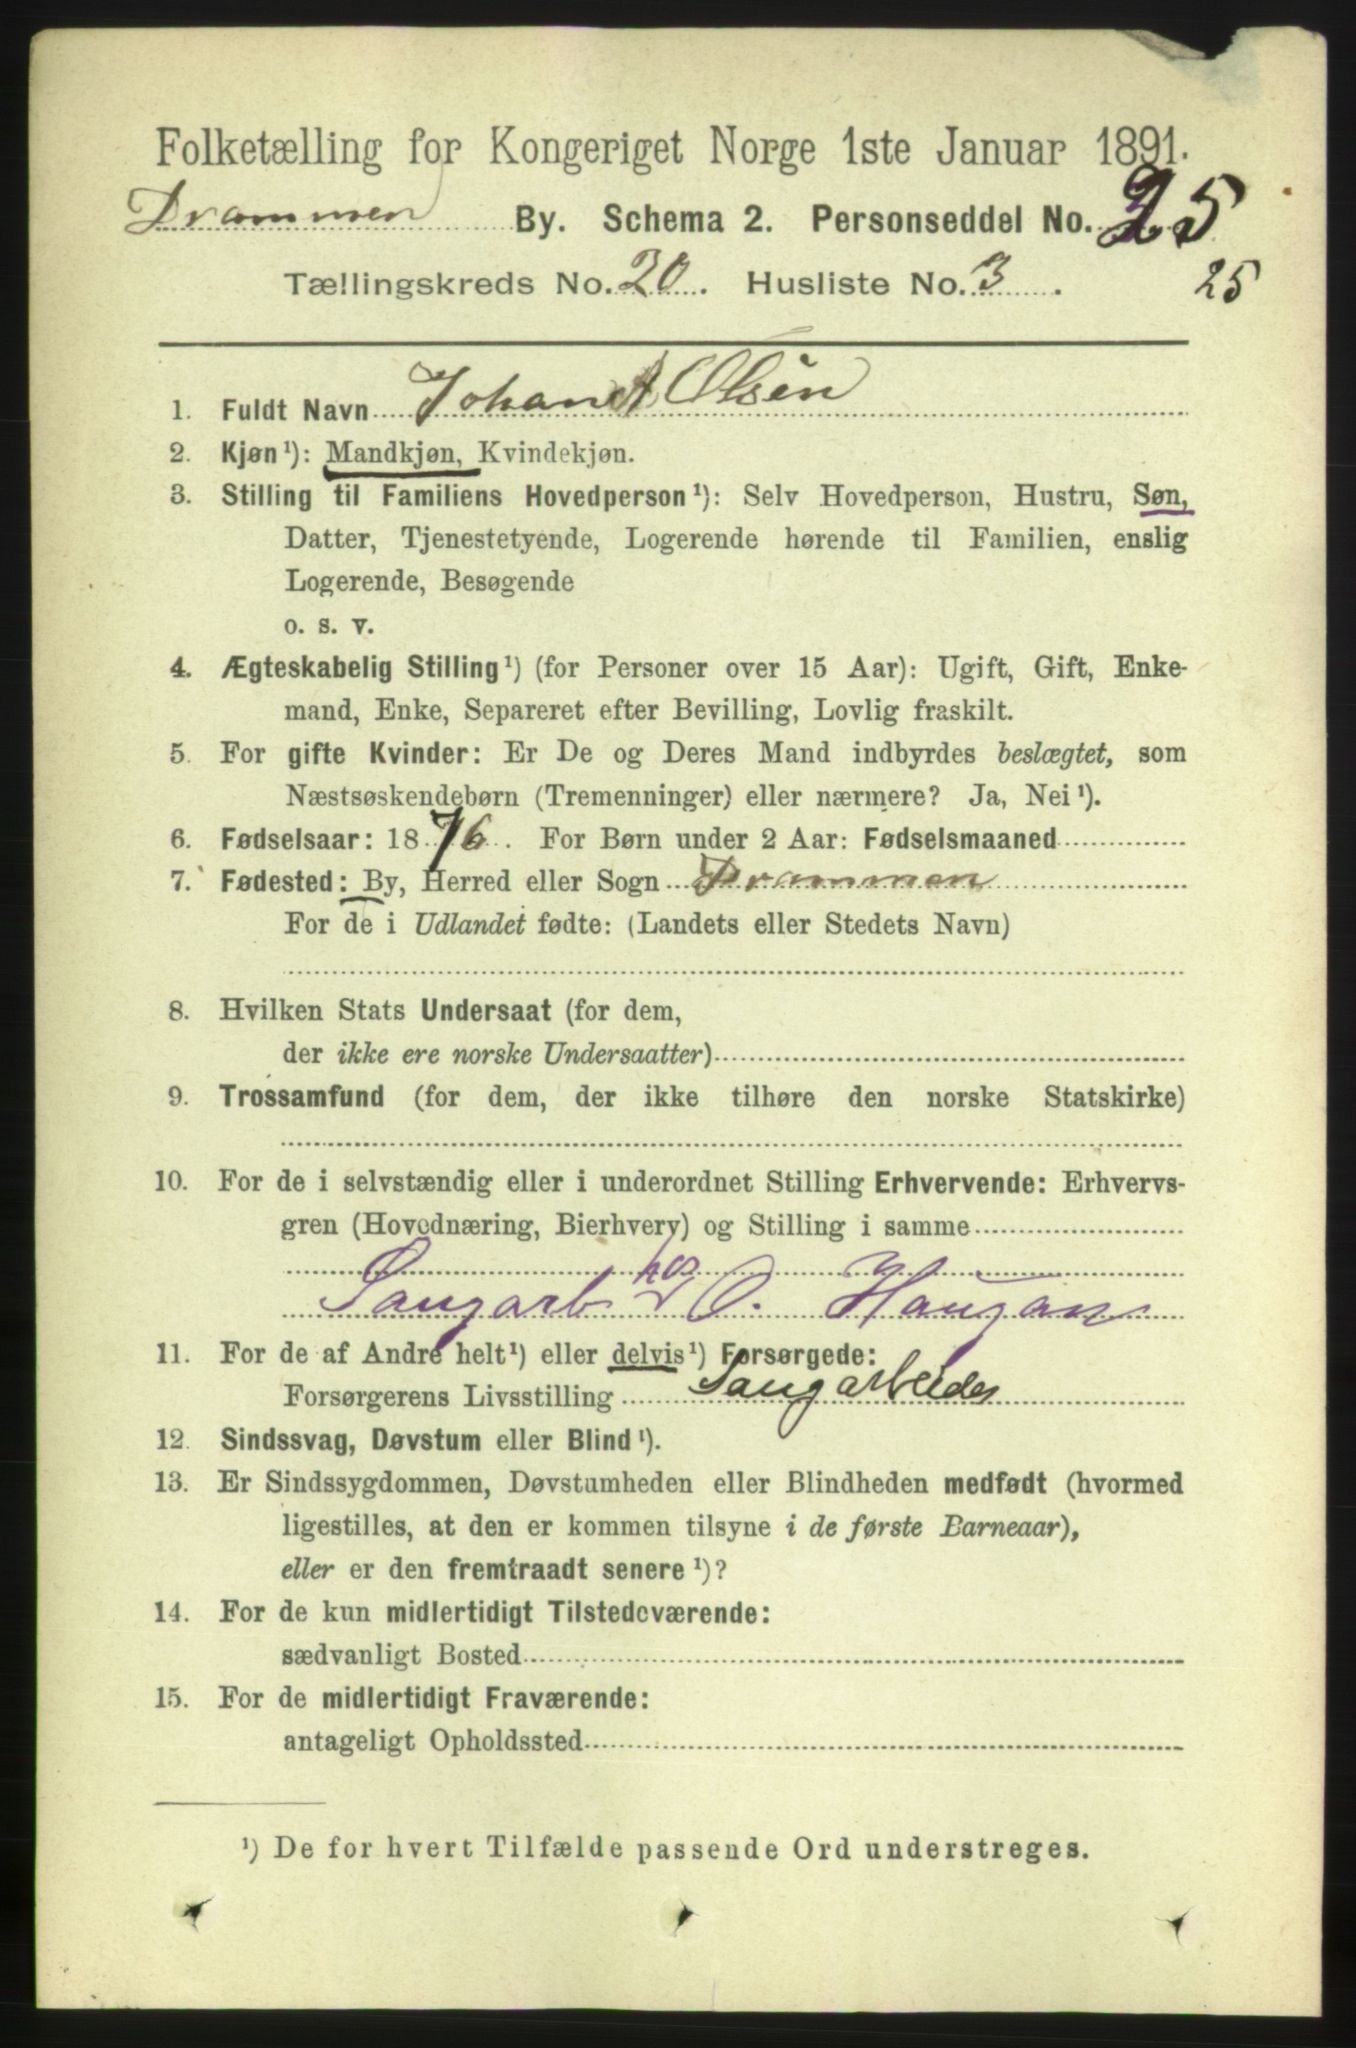 Folketælling for Kongeriget Norge 1ste Januar 1891.
Drammen By. Schema 2. Personseddel No. 25
Tællingskreds No. 20. Husliste No. 3. 25
1. Fuldt Navn Johan A Olsen
2. Kjøn¹): Mandkjøn, Kvindekjøn.
3. Stilling til Familiens Hovedperson¹): Selv Hovedperson, Hustru, Søn,
Datter, Tjenestetyende, Logerende hørende til Familien, enslig
Logerende, Besøgende
o. s. v.
4. Ægteskabelig Stilling¹) (for Personer over 15 Aar): Ugift, Gift, Enke-
mand, Enke, Separeret efter Bevilling, Lovlig fraskilt.
5. For gifte Kvinder: Er De og Deres Mand indbyrdes beslægtet, som
Næstsøskendebørn (Tremenninger) eller nærmere? Ja, Nei¹).
6. Fødselsaar: 1876. For Børn under 2 Aar: Fødselsmaaned
7. Fødested: By, Herred eller Sogn Drammen
For de i Udlandet fødte: (Landets eller Stedets Navn)
8. Hvilken Stats Undersaat (for dem,
der ikke ere norske Undersaatter)
9. Trossamfund (for dem, der ikke tilhøre den norske Statskirke)
10. For de i selvstændig eller i underordnet Stilling Erhvervende: Erhvervs-
gren (Hovednæring, Bierhverv) og Stilling i samme
Saugarb O. Haugan
11. For de af Andre helt¹) eller delvis¹) Forsørgede:
Forsørgerens Livsstilling Saugarbeider
12. Sindssvag, Døvstum eller Blind¹).
13. Er Sindssygdommen, Døvstumheden eller Blindheden medfødt (hvormed
ligestilles, at den er kommen tilsyne i de første Barneaar),
eller er den fremtraadt senere¹)?
14. For de kun midlertidigt Tilstedeværende:
sædvanligt Bosted
15. For de midlertidigt Fraværende:
antageligt Opholdssted
¹) De for hvert Tilfælde passende Ord understreges.